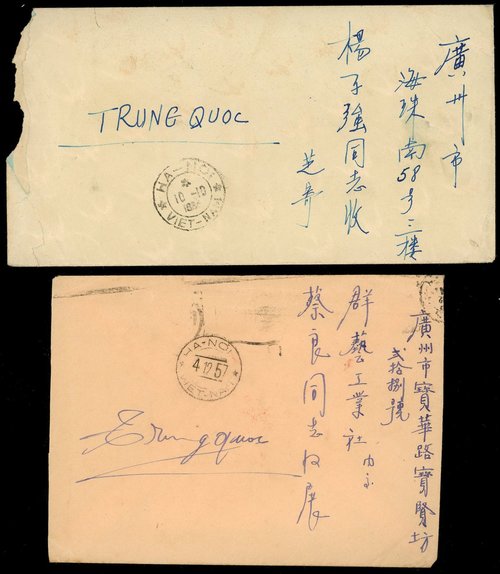 廣州市
海珠南58号三樓
楊子強同志收
芝寄
TRUNG QUOC
HA-NOI
10-10
VIET-NAM
廣州市寶華路寶賢坊
貳拾捌號
群藝工業社
蔡良同志收展
Trung quoc
HA-NOI
4 12 57
VIET-NAM